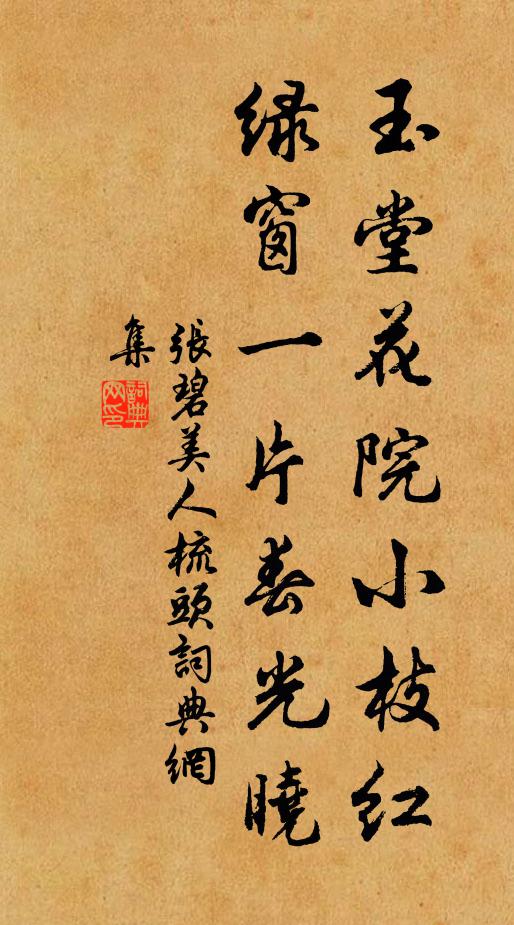 玉堂花院小枝红
绿窗一片春光曉
張碧美人梳頭詞典網
集
詞典
网印